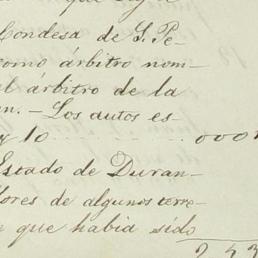 Condesa de S. Pe-
como árbitro nom-
al árbitro de la
an. — Los autos es
y 10 000
Estado de Duran-
dores de algunos terre-
que habia sido